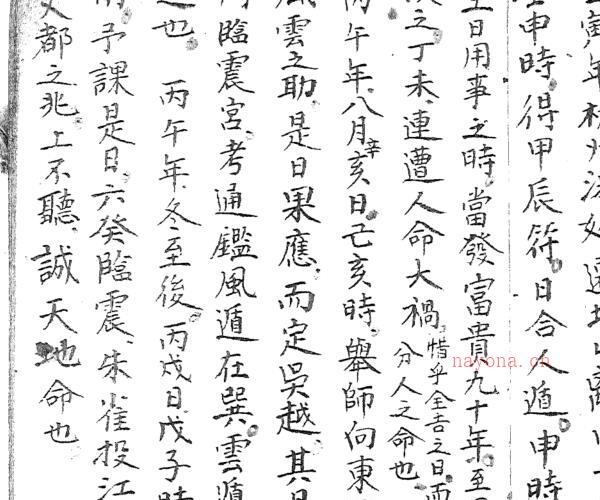 寅年杭州
申時得甲辰符日合人遁申時
日用事之時當發富貴九十年至
之丁未連遭人命大禍惜乎全吉之日而分人之命也
丙午年八月辛亥日己亥時舉師向東
風雲之助是日果應而定吳越其日
臨震宮考通鑑風遁在巽雲遁
也 丙午年冬至後丙戌日戊子時
予課是日六癸臨震朱雀投江
都之兆上不聽誠天地命也
nayona.cn